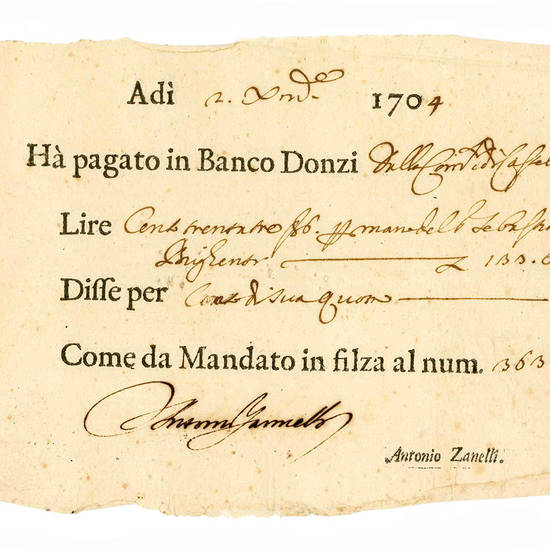 Adì 2. Xmbr̃e 1704
Hà pagato in Banco Donzi Dalla Com.tà di Cassa
Lire Cento trenta tre s 6. p mano del
L 133. 6
Disse per Conto di sua quota
Come da Mandato in filza al num. 363
Antonio Zanelli
Antonio Zanelli.